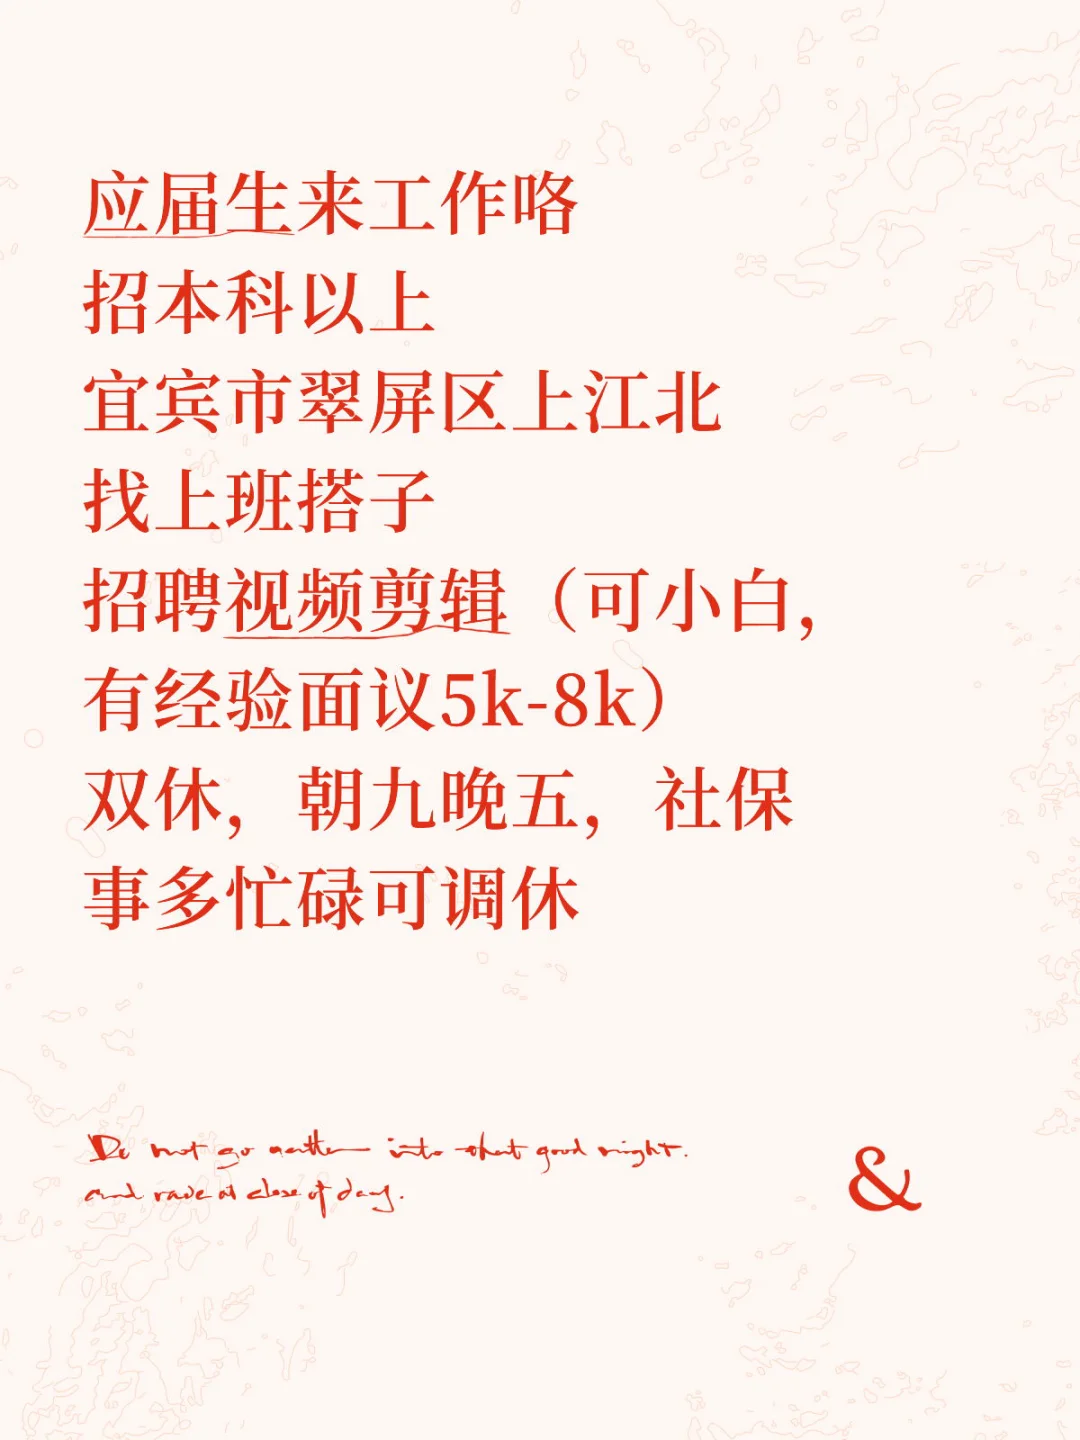 应届生来工作咯
招本科以上
宜宾市翠屏区上江北
找上班搭子
招聘视频剪辑（可小白，
有经验面议5k-8k）
双休，朝九晚五，社保
事多忙碌可调休
Do not go gentle into that good night.
and rave at close of day.
&